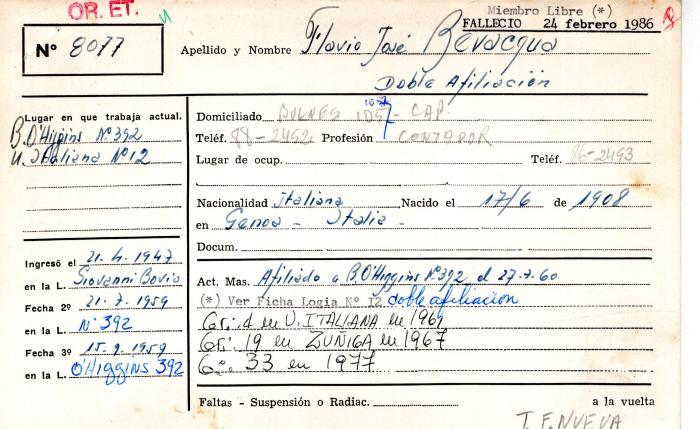 OR. ET.
Miembro Libre (*)
FALLECIO 24 febrero 1986
Nº 8077
Apellido y Nombre Flavio José Bevacqua
Doble Afiliación
Lugar en que trabaja actual.
B. O'Higgins Nº 392
U. Italiana Nº 12
Domiciliado BULNES 1057 - CAP.
Teléf. 88-2452 Profesión CONTADOR
Lugar de ocup. Teléf. 86-2493
Nacionalidad italiana Nacido el 17/6 de 1908
en Genoa - Italia -
Docum.
Ingresó el 21.4.1947
en la L. Giovanni Bovio
Fecha 2º 21-7-1959
en la L. Nº 392
Fecha 3º 15-9-1959
en la L. O'Higgins 392
Act. Mas. Afiliado a B. O'Higgins Nº 392 el 27-7-60
(*) Ver Ficha Logia Nº 12 doble afiliacion
Gr: 4 en U. ITALIANA en 1964
Gr: 19 en ZUÑIGA en 1967
Gº. 33 en 1977
Faltas - Suspensión o Radiac.
a la vuelta
T. F. NUEVA